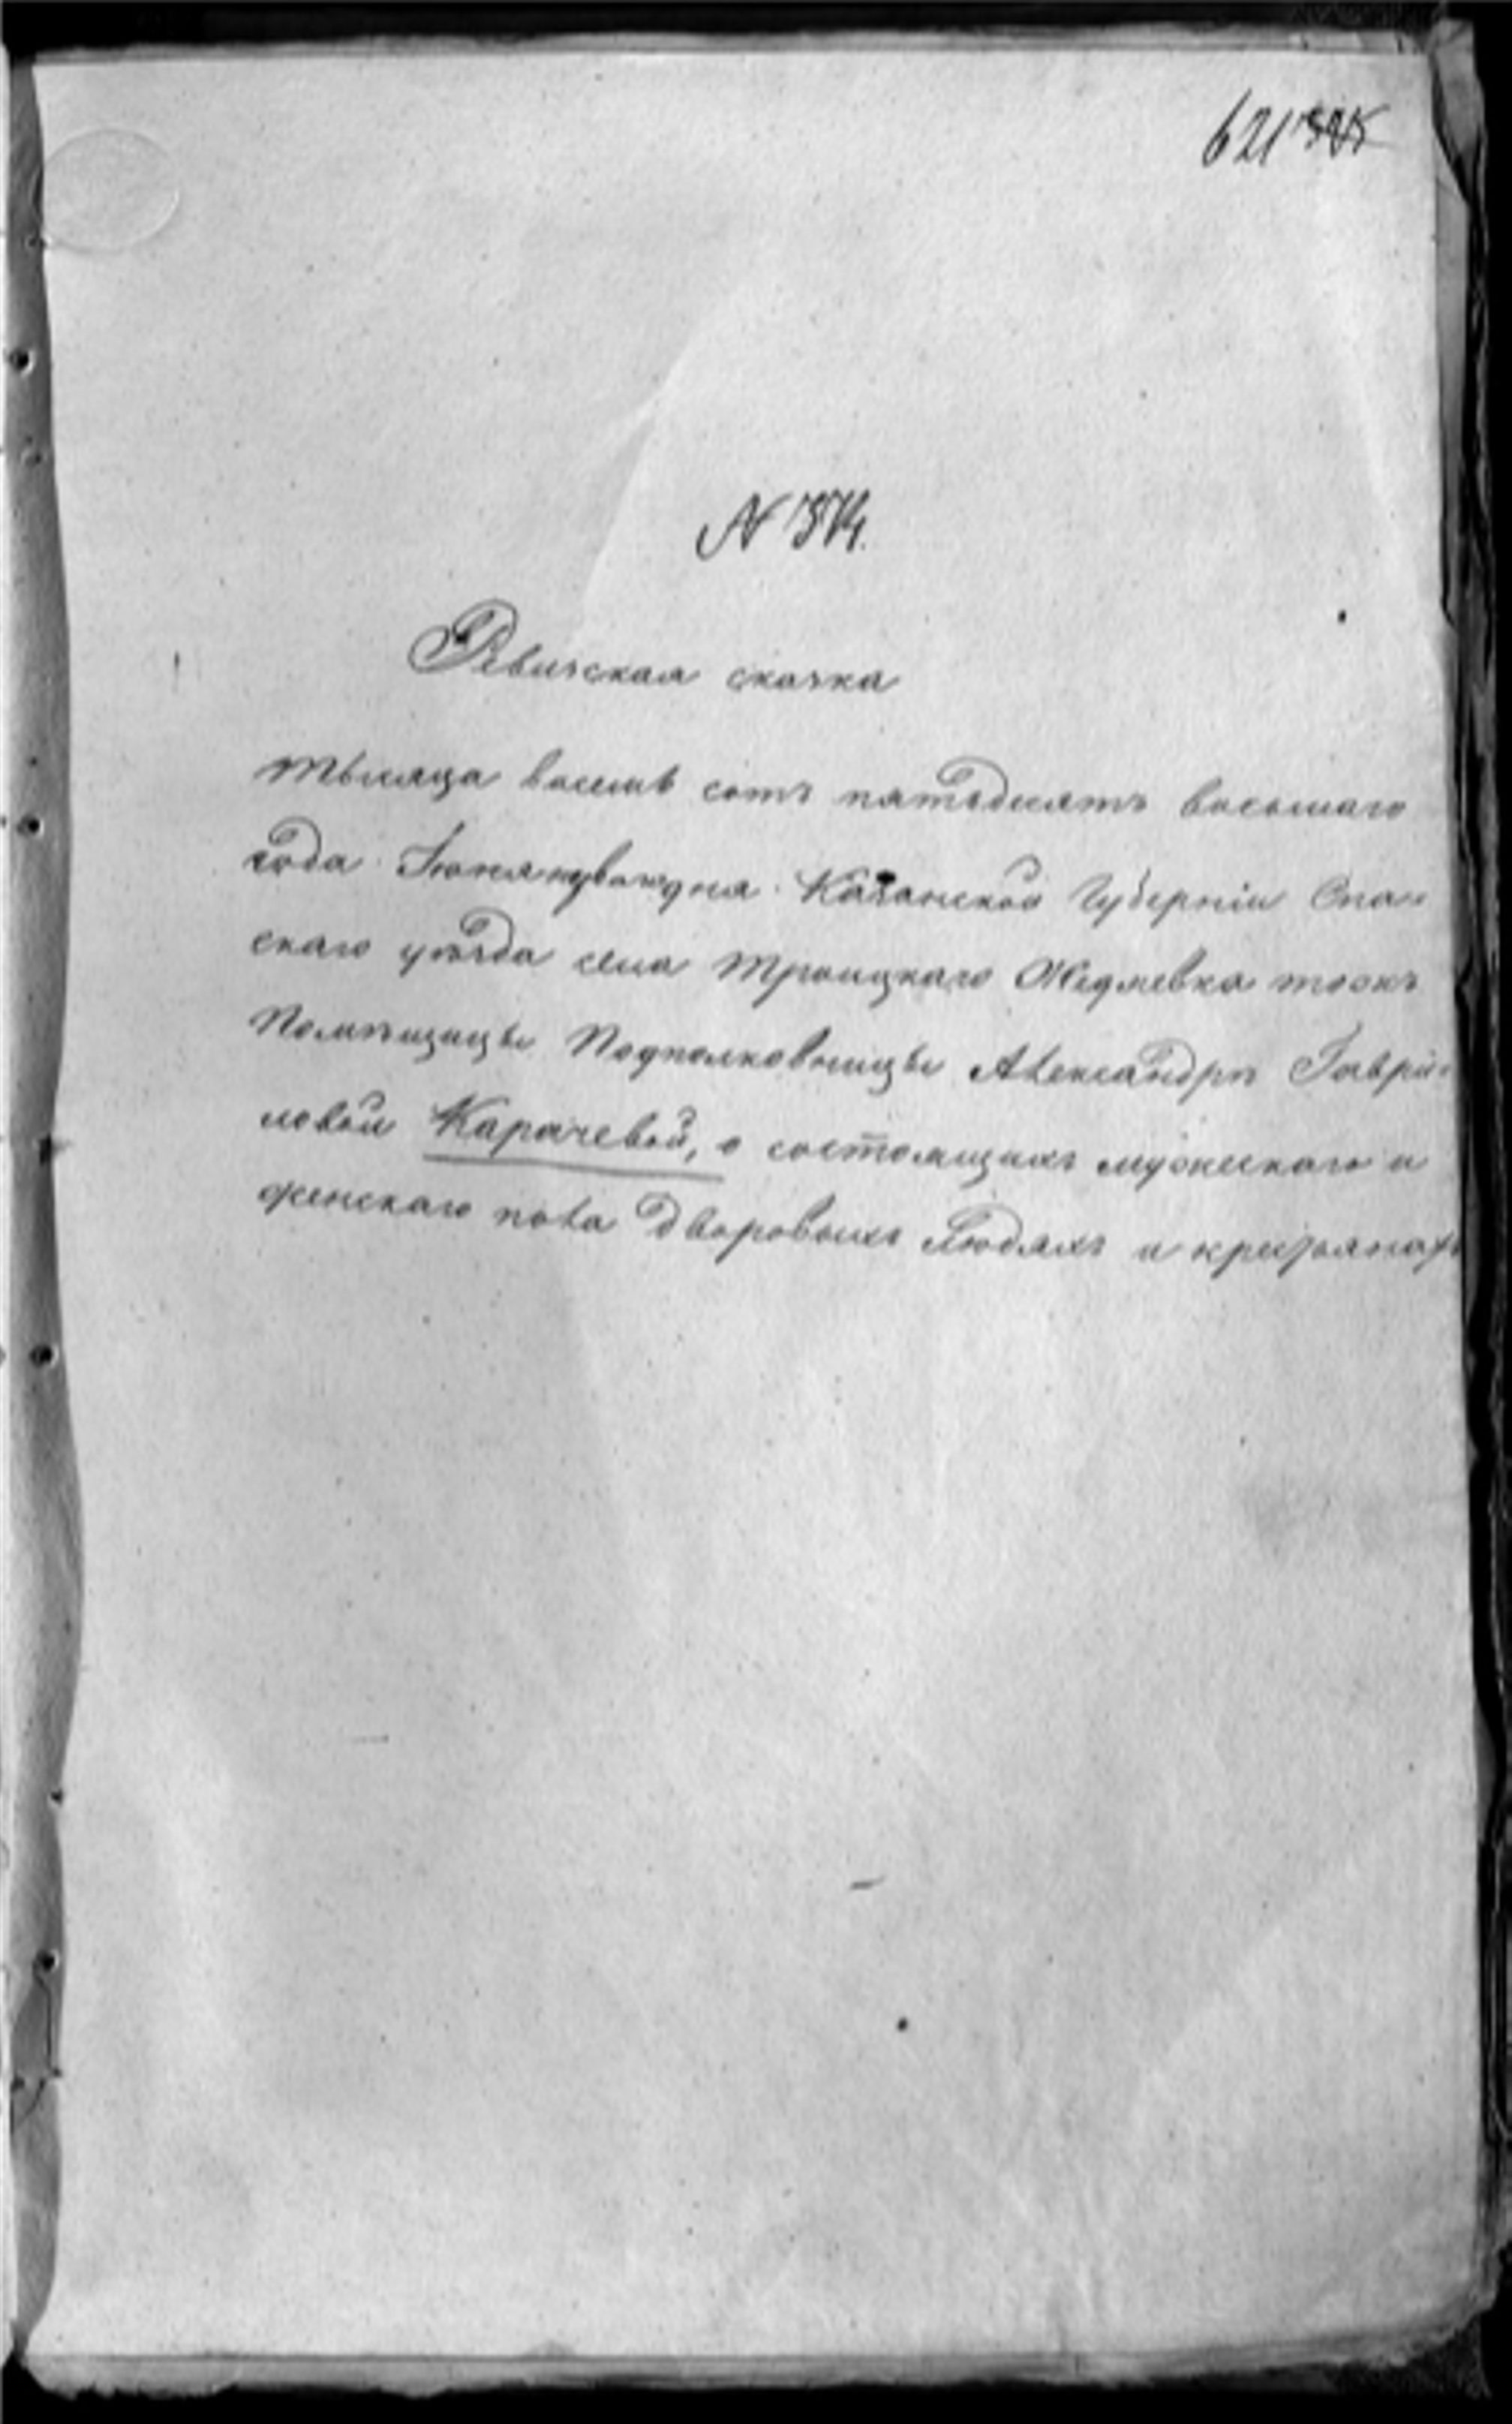 621
N 374.
Ревизская сказка
тысяча восемь сотъ пятьдесятъ восьмаго
года Іюня первого дня Казанской Губерніи Спа=
скаго уѣзда села Троицкаго тожъ
Помѣщицы Подполковницы Александры Гаври=
ловой Карачевой, о состоящихъ мужескаго и
женскаго пола Дворовыхъ людяхъ и крестьянахъ